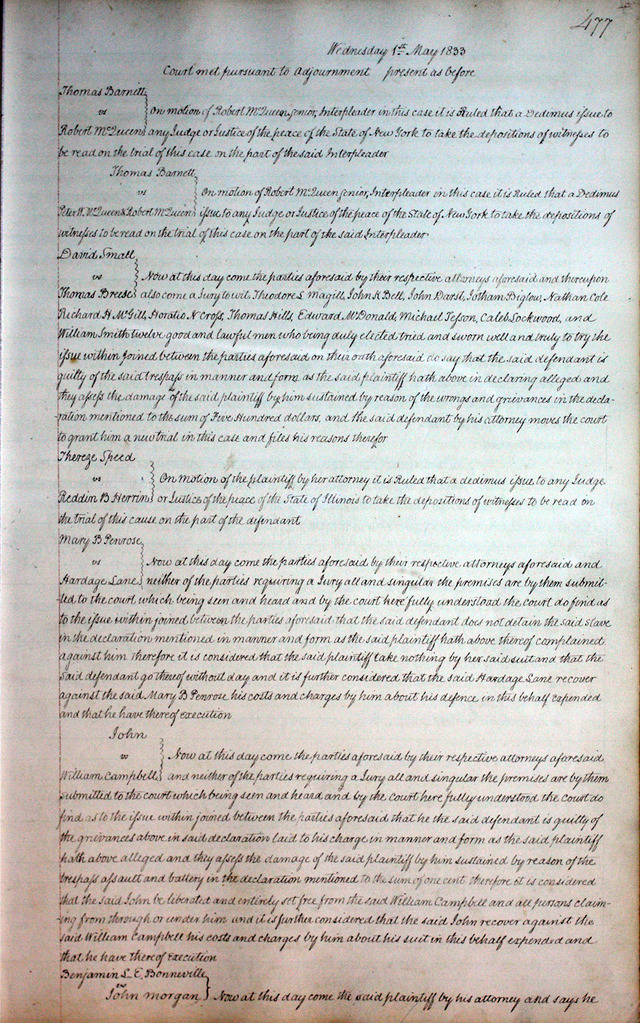 477
Wednesday 1st May 1833
Court met pursuant to adjournment present as before
Thomas Barnett
vs On motion of Robert McQueen senior, Interpleader in this case it is Ruled that a Dedimus issue to
Robert McQueen any Judge or Justice of the peace of the State of New York to take the depositions of witnesses to
be read on the trial of this case on the part of the said Interpleader
Thomas Barnett
vs On motion of Robert McQueen senior, Interpleader in this case it is Ruled that a Dedimus
Peter W. McQueen & Robert McQueen issue to any Judge or Justice of the peace of the State of New York to take the depositions of
witnesses to be read on the trial of this case on the part of the said Interpleader
David Small
vs Now at this day come the parties aforesaid by their respective attorneys aforesaid and thereupon
Thomas Breese also come a Jury to wit, Theodore L Magill, John K Bell, John Darst, Jotham Biglow, Nathan Cole
Richard H. McGill, Horatio N Cross, Thomas Hills, Edward McDonald, Michael Tesson, Caleb Lockwood, and
William Smith twelve good and lawful men who being duly elected tried and sworn well and truly to try the
issue within joined between the parties aforesaid on their oath aforesaid do say that the said defendant is
guilty of the said trespass in manner and form as the said plaintiff hath above in declaring alleged and
they assess the damage of the said plaintiff by him sustained by reason of the wrongs and grievances in the decla-
ration mentioned to the sum of Five Hundred dollars, and the said defendant by his attorney moves the court
to grant him a new trial in this case and files his reasons therefor
Thereze Speed
vs On motion of the plaintiff by her attorney it is Ruled that a dedimus issue to any Judge
Reddin B Herrin or Justice of the peace of the State of Illinois to take the depositions of witnesses to be read on
the trial of this cause on the part of the defendant
Mary B Penrose
vs Now at this day come the parties aforesaid by their respective attorneys aforesaid and
Hardage Lane neither of the parties requiring a Jury all and singular the premises are by them submit-
-ted to the court which being seen and heard and by the court here fully understood the court do find as
to the issue within joined between the parties aforesaid that the said defendant does not detain the said slave
in the declaration mentioned in manner and form as the said plaintiff hath above thereof complained
against him Therefore it is considered that the said plaintiff take nothing by her said suit and that the
said defendant go thereof without day and it is further considered that the said Hardage Lane recover
against the said Mary B Penrose his costs and charges by him about his defence in this behalf expended
and that he have thereof execution
John
vs Now at this day come the parties aforesaid by their respective attorneys aforesaid
William Campbell and neither of the parties requiring a Jury all and singular the premises are by them
submitted to the court which being seen and heard and by the court here fully understood the court do
find as to the issue within joined between the parties aforesaid that he the said defendant is guilty of
the grievances above in said declaration laid to his charge in manner and form as the said plaintiff
hath above alleged and they assess the damage of the said plaintiff by him sustained by reason of the
trespass assault and battery in the declaration mentioned to the sum of one cent therefore it is considered
that the said John be liberated and entirely set free from the said William Campbell and all persons claim-
-ing from through or under him and it is further considered that the said John recover against the
said William Campbell his costs and charges by him about his suit in this behalf expended and
that he have thereof execution
Benjamin L E Bonneville
vs John Morgan Now at this day come the said plaintiff by his attorney and says he